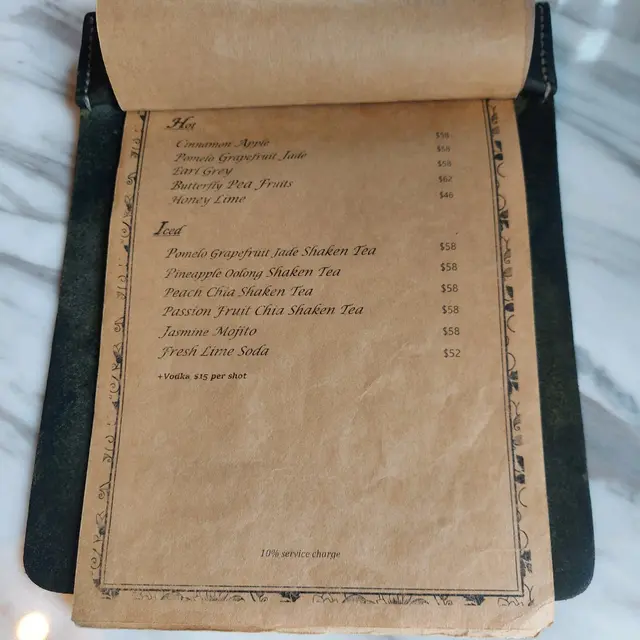 Hot
Cinnamon Apple $58
Pomelo Grapefruit Jade $58
Earl Grey $58
Butterfly Pea Fruits $62
Honey Lime $46
Iced
Pomelo Grapefruit Jade Shaken Tea $58
Pineapple Oolong Shaken Tea $58
Peach Chia Shaken Tea $58
Passion Fruit Chia Shaken Tea $58
Jasmine Mojito $58
Fresh Lime Soda $52
+Vodka, $15 per shot
10% service charge